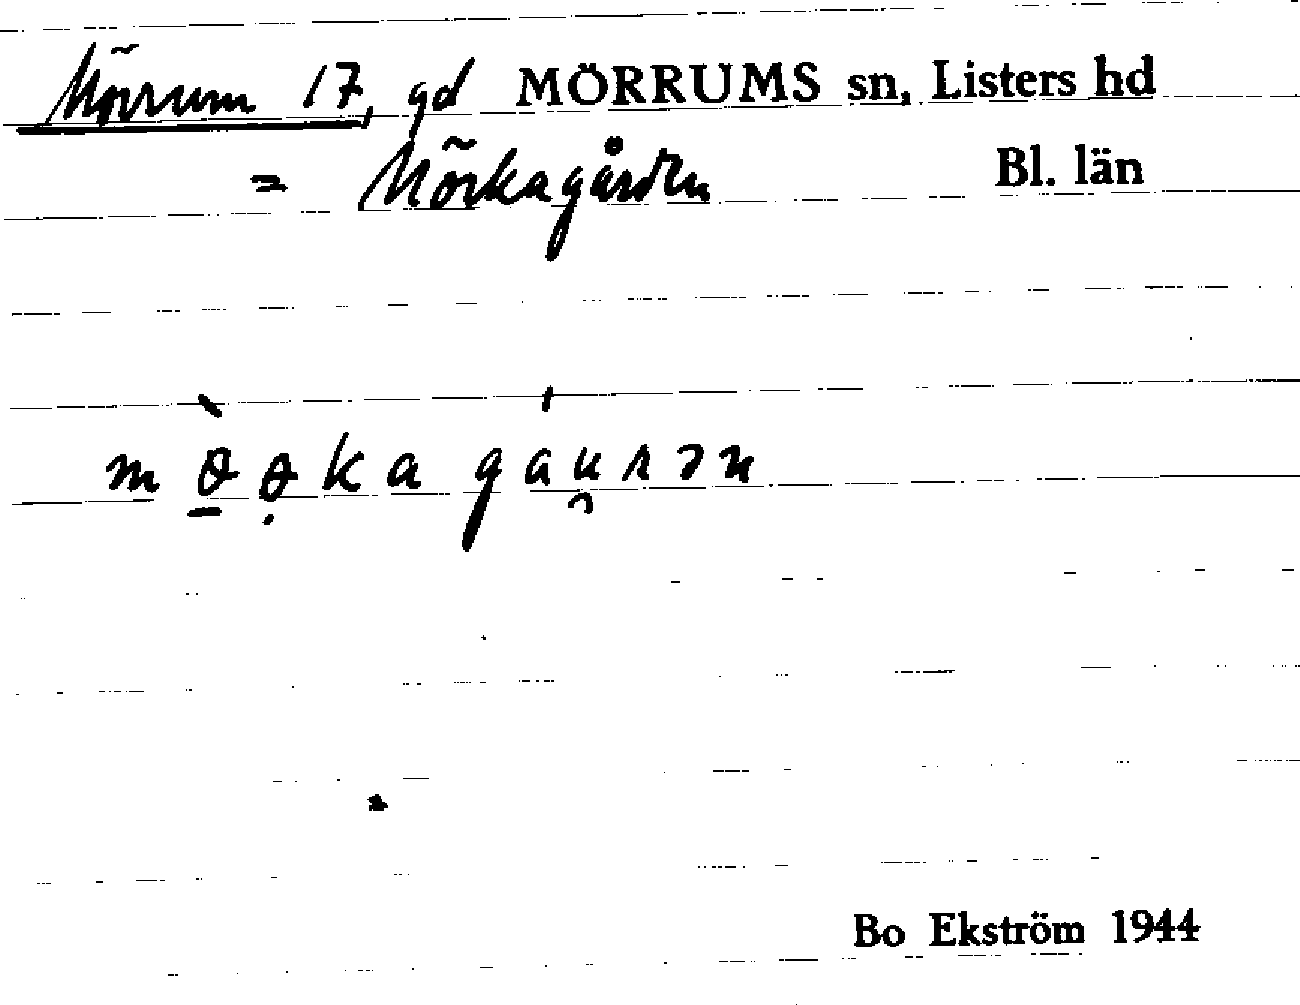 Mörrum 17, gd MÖRRUMS sn, Listers hd
= Mörkagården Bl. län
Bo Ekström 1944